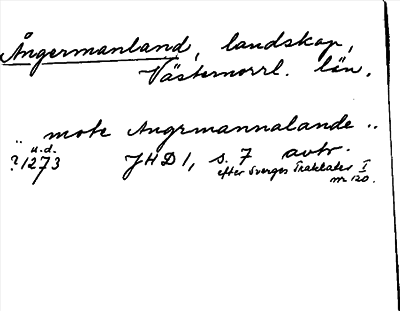 Ångermanland, landskap,
Västernorrl. län.
.. mote Angrmannalande ..
u.d.
?1273 JHD 1, s. 7 avtr.
efter Sverges Traktater I
nr 120.